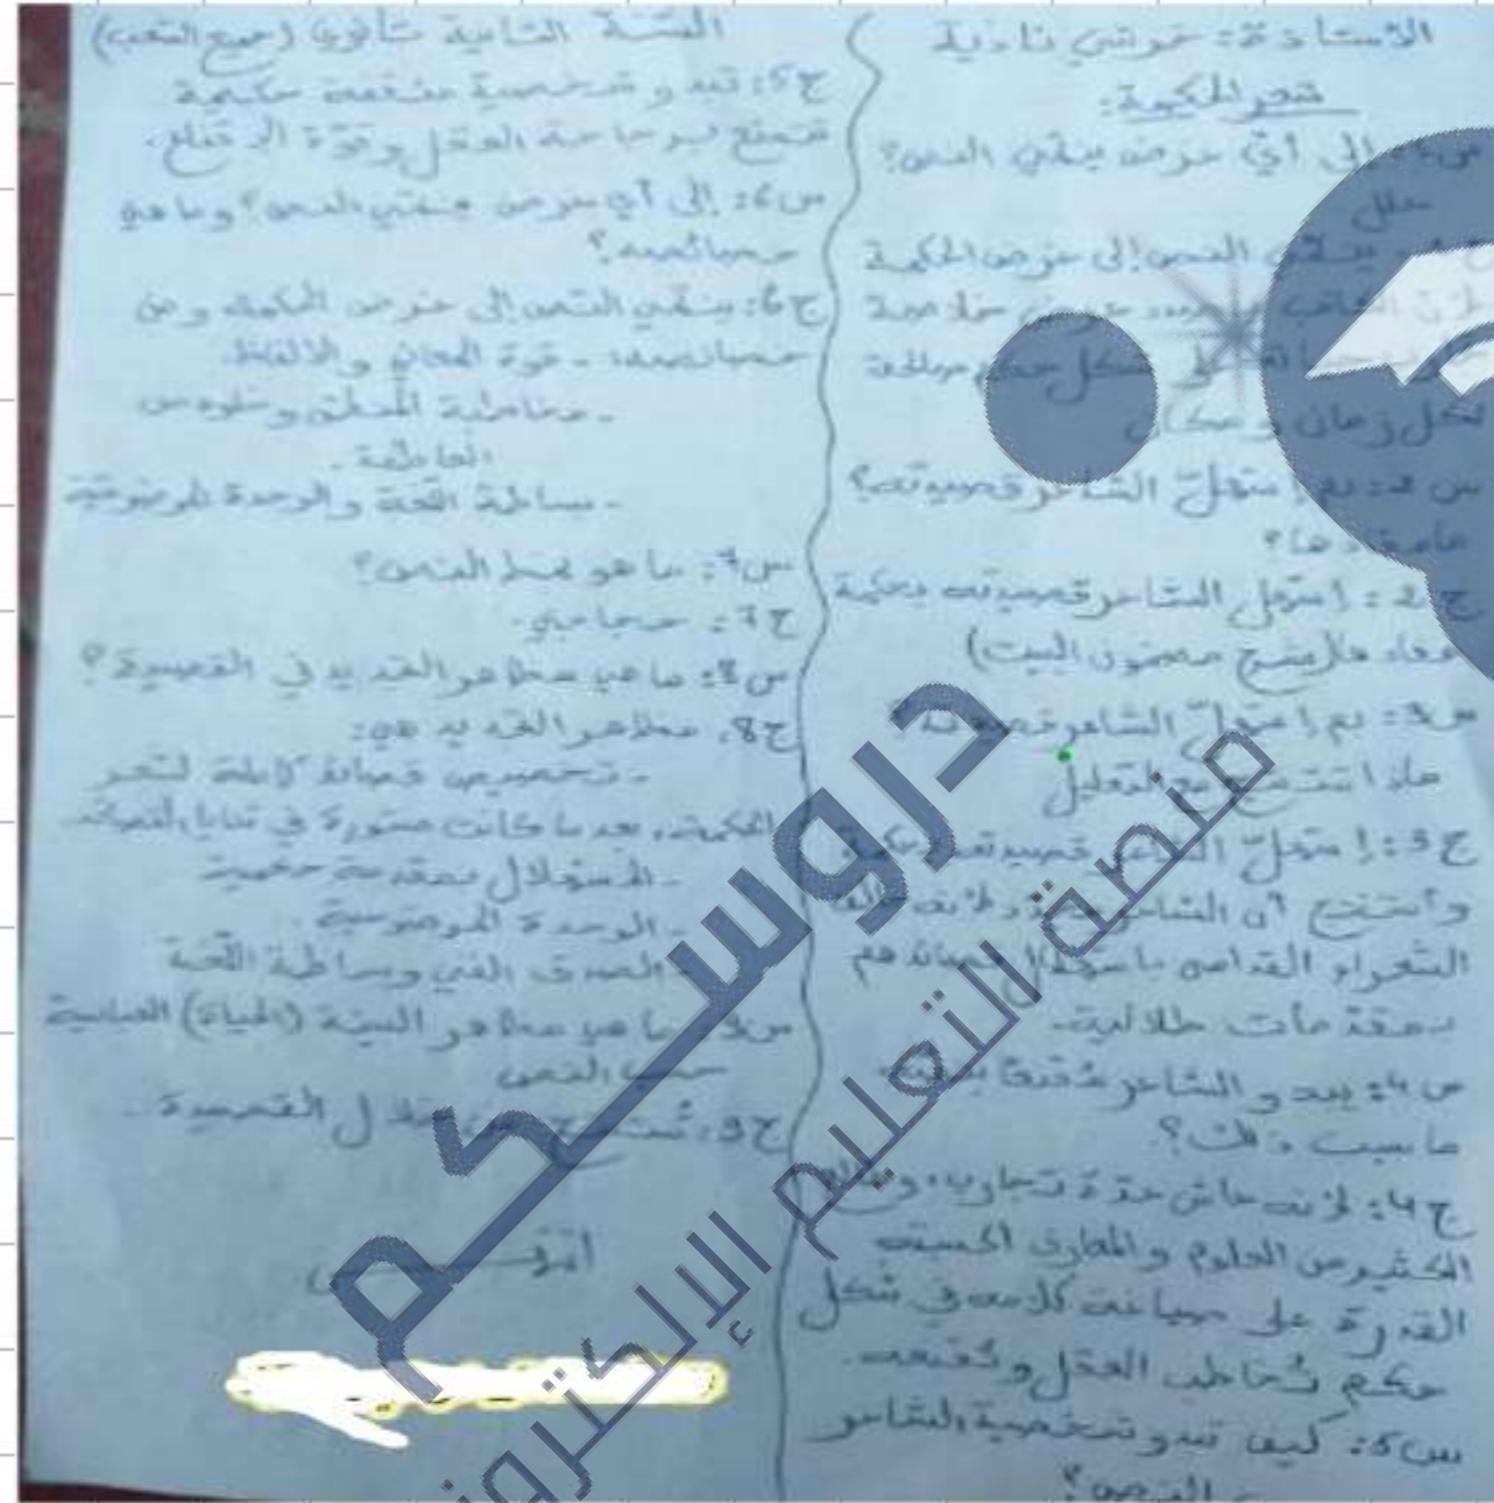 الأستاذة: خرشي نادية
شعر الحكمة:
إلى أيّ غرض ينتمي النص؟
علل
ينتمي النص إلى غرض الحكمة
لكل زمان ومكان
س2: بم استهلّ الشاعر قصيدته؟
ما مفادها؟
ج2: استهل الشاعر قصيدته بحكمة
مفادها (شرح مضمون البيت)
س3: بم استهلّ الشاعر قصيدته؟
ماذا تستنتج مع التعليل
ج3: استهلّ الشاعر قصيدته بحكمة
وأستنتج أن الشاعر مجدد لأنه خالف
الشعراء القدامى باستهلال قصائدهم
بمقدمات طللية.
س4: يبدو الشاعر مُقنعًا
ما سبب ذلك؟
ج4: لأنه عاش عدة تجارب،
الكثير من العلوم والمعارف أكسبته
القدرة على صياغة كلامه في شكل
حكم تُخاطب العقل وتُقنعه.
س5: كيف تبدو شخصية الشاعر
النص؟
السنة الثانية ثانوي (جميع الشعب)
ج5: تبدو شخصية مثقفة حكيمة
تتمتع برجاحة العقل وقوّة الإقناع.
س6: إلى أي غرض ينتمي النص؟ وما هي
خصائصه؟
ج6: ينتمي النص إلى غرض الحكمة ومن
خصائصه: - قوة المعاني والألفاظ
- مخاطبة العقل وخلوه من
العاطفة.
- بساطة اللغة والوحدة الموضوعية
س7: ما هو نمط النص؟
ج7: حجاجي.
س8: ما هي مظاهر التجديد في القصيدة؟
ج8: مظاهر التجديد هي:
- تخصيص قصائد كاملة لشعر
الحكمة، بعدما كانت منثورة في ثنايا القصائد
- الاستهلال بمقدمة حكمية
- الوحدة الموضوعية.
الصدق الفني وبساطة اللغة
س9: ما هي مظاهر البيئة (الحياة) العباسية
حسب النص
ج9: تُستنتج من خلال القصيدة.
انتهى
دروسكم
منصة التعليم الإلكتروني